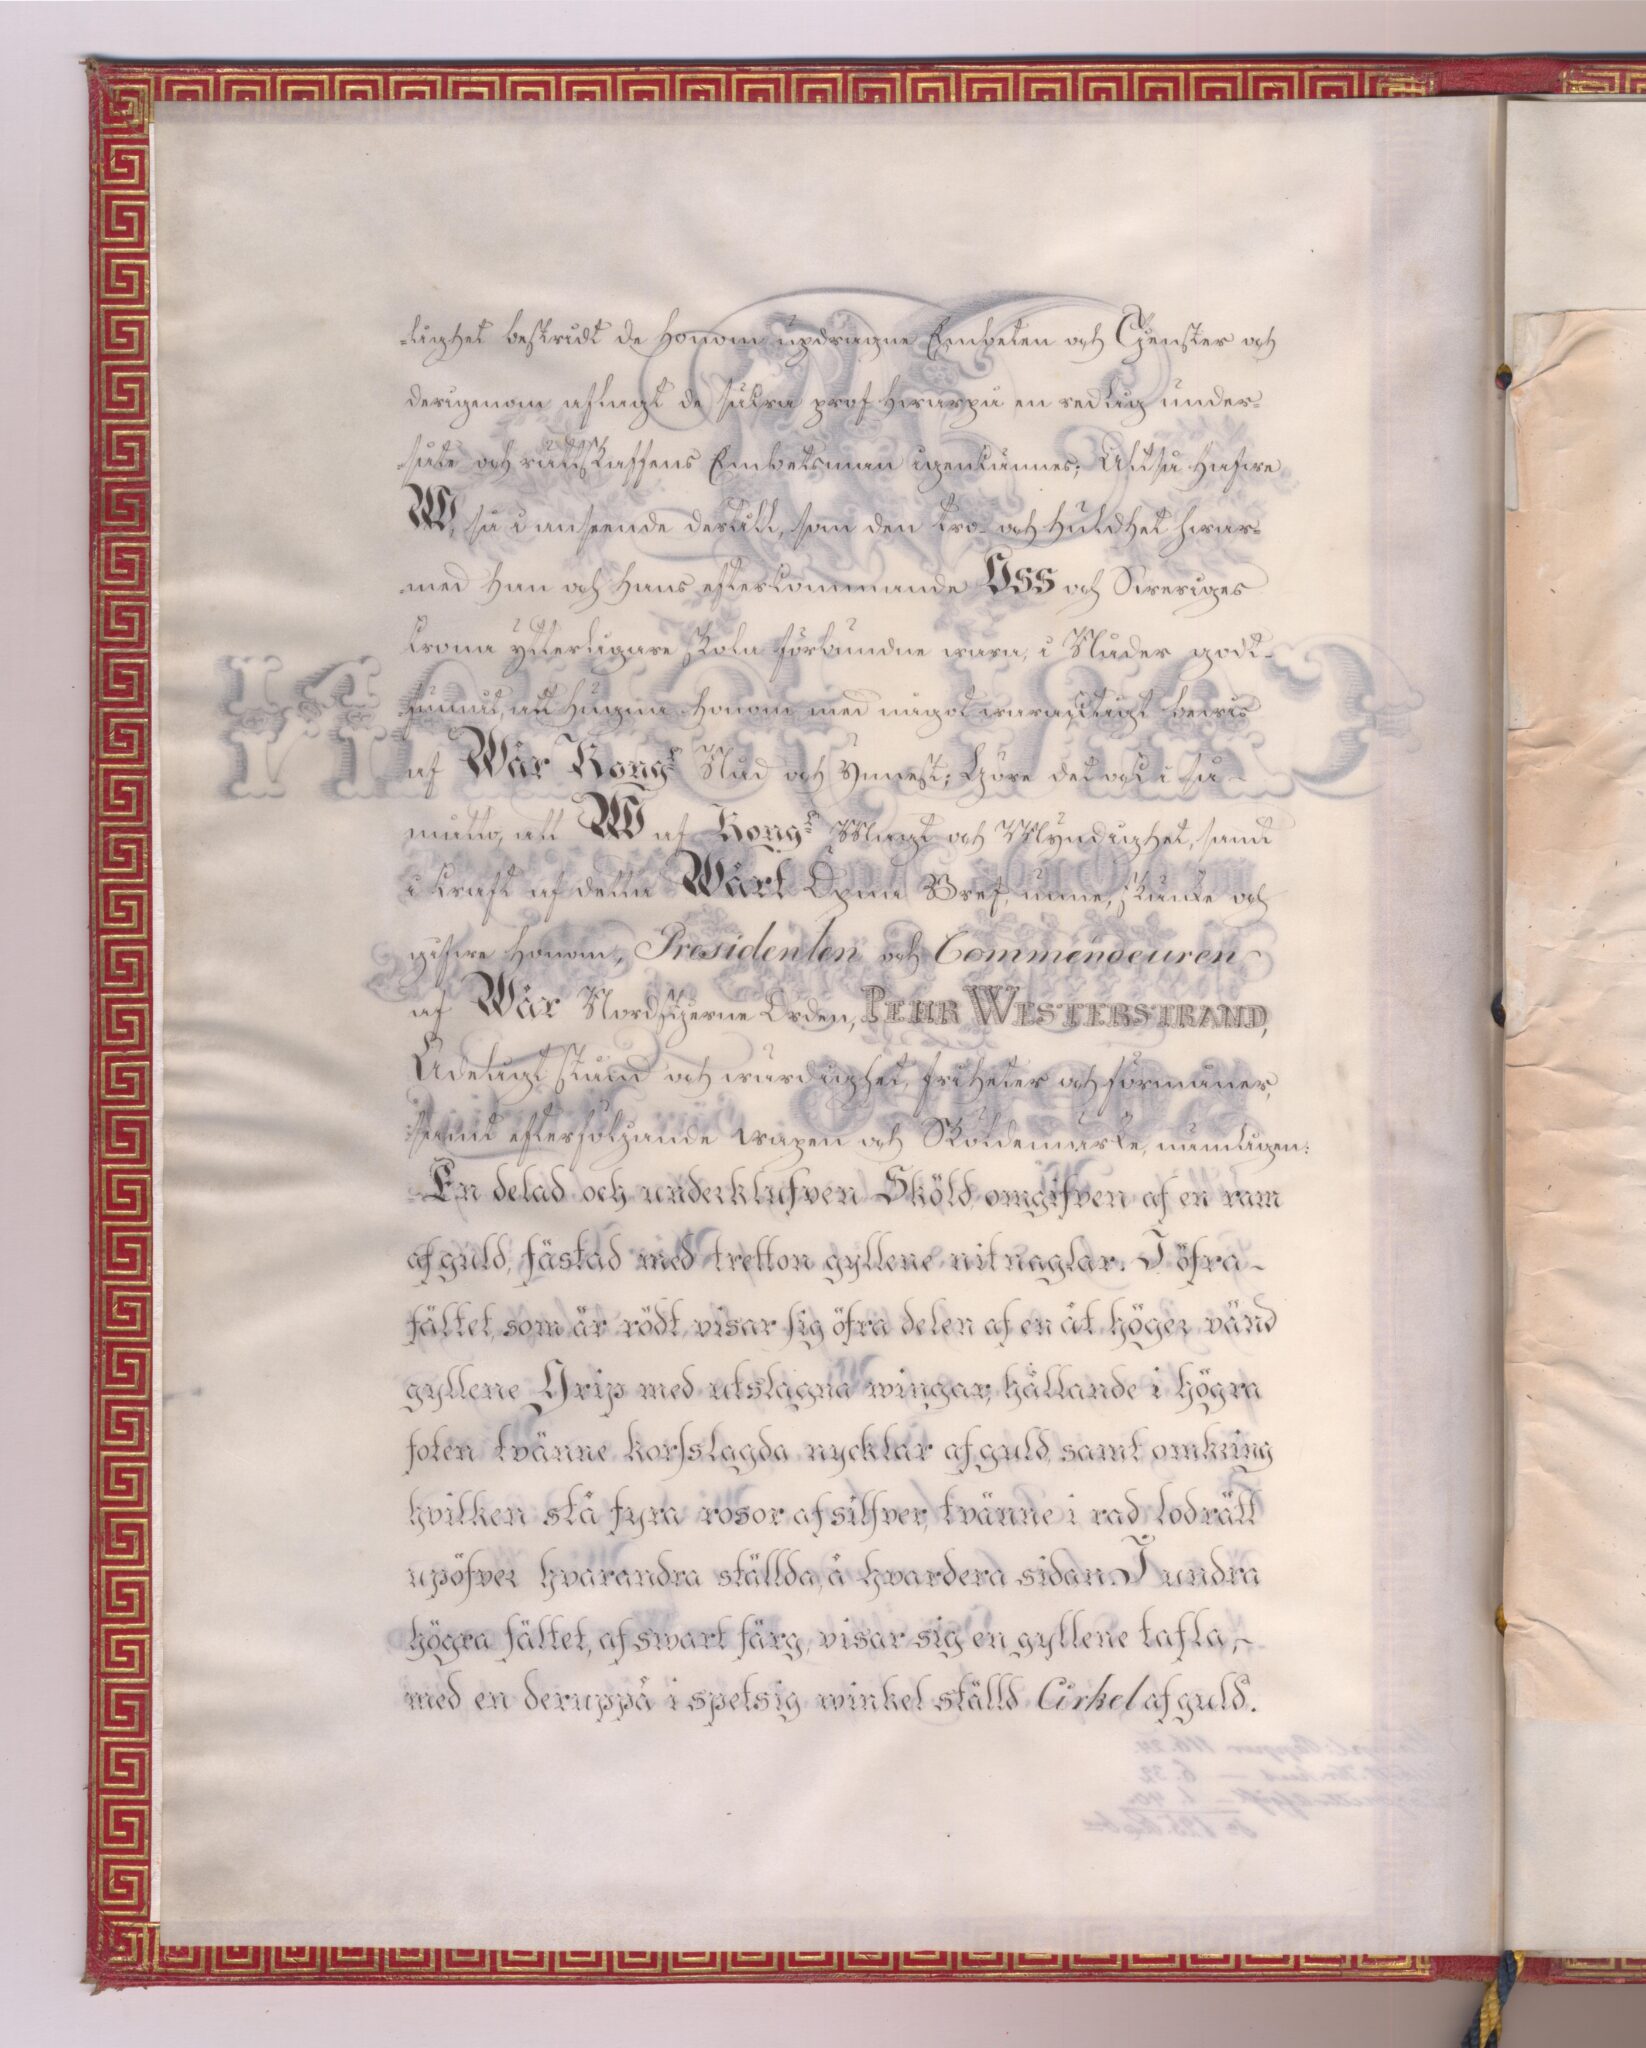 -lighet bestridt de honom updragne Embeten och Tjenster och
derigenom aflagt de säkra prof hwarpå en redlig under-
såte och rättskaffens Embetsman igenkännes; Altså hafve
Wi, så i anseende dertill, som den tro- och huldhet hwar-
med han och hans efterkommande Oss och Sveriges
krona ytterligare skola förbundne wara, i Nåder godt-
funnit, att hugna honom med något waracktigt bewis
af Wår Kongl Nåd och Ynnest; Göre det ock i så
motto, att Wi af Kongl Magt och Myndighet, samt
i kraft af detta Wårt Öpna Bref, unne, skänke och
gifwe honom, Presidenten och Commendeuren
af Wår Nordstjerne Orden, PEHR WESTERSTRAND,
Adeligt stånd och wärdighet, friheter och förmåner,
samt efterföljande wapen och Sköldemärke, nämligen:
En delad och underklufven Sköld, omgifven af en ram
af guld, fästad med tretton gyllene nitnaglar. I öfra
fältet, som är rödt, visar sig öfra delen af en åt höger vänd
gyllene Grip med utslagna wingar, hållande i högra
foten tvänne korsslagda nycklar af guld, samt omkring
hvilken stå fyra rosor af silfver, tvänne i rad lodrätt
upöfver hvarandra ställda, å hvardera sidan. I undra
högra fältet, af swart färg, visar sig en gyllene tafla,
med en deruppå i spetsig winkel ställd Cirkel af guld.